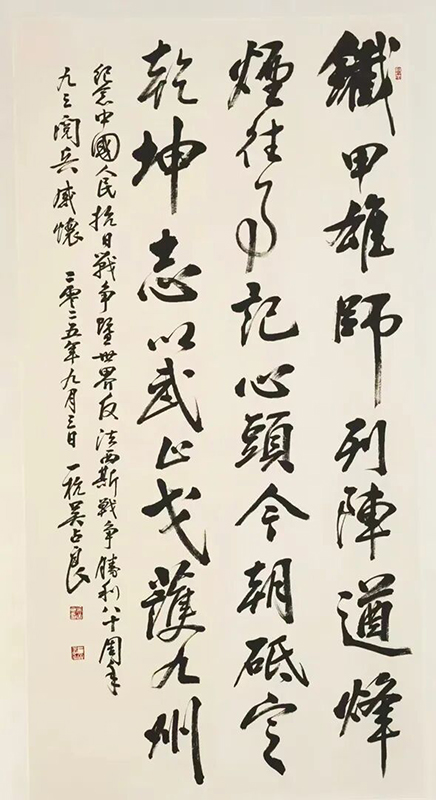 鐵甲雄師列陣遒烽
煙往事記心頭今朝砥定
乾坤志以武止戈護九州
紀念中國人民抗日戰争暨世界反法西斯戰争勝利八十周年
九三閱兵感懷 二零二五年九月三日 一杭吴占良